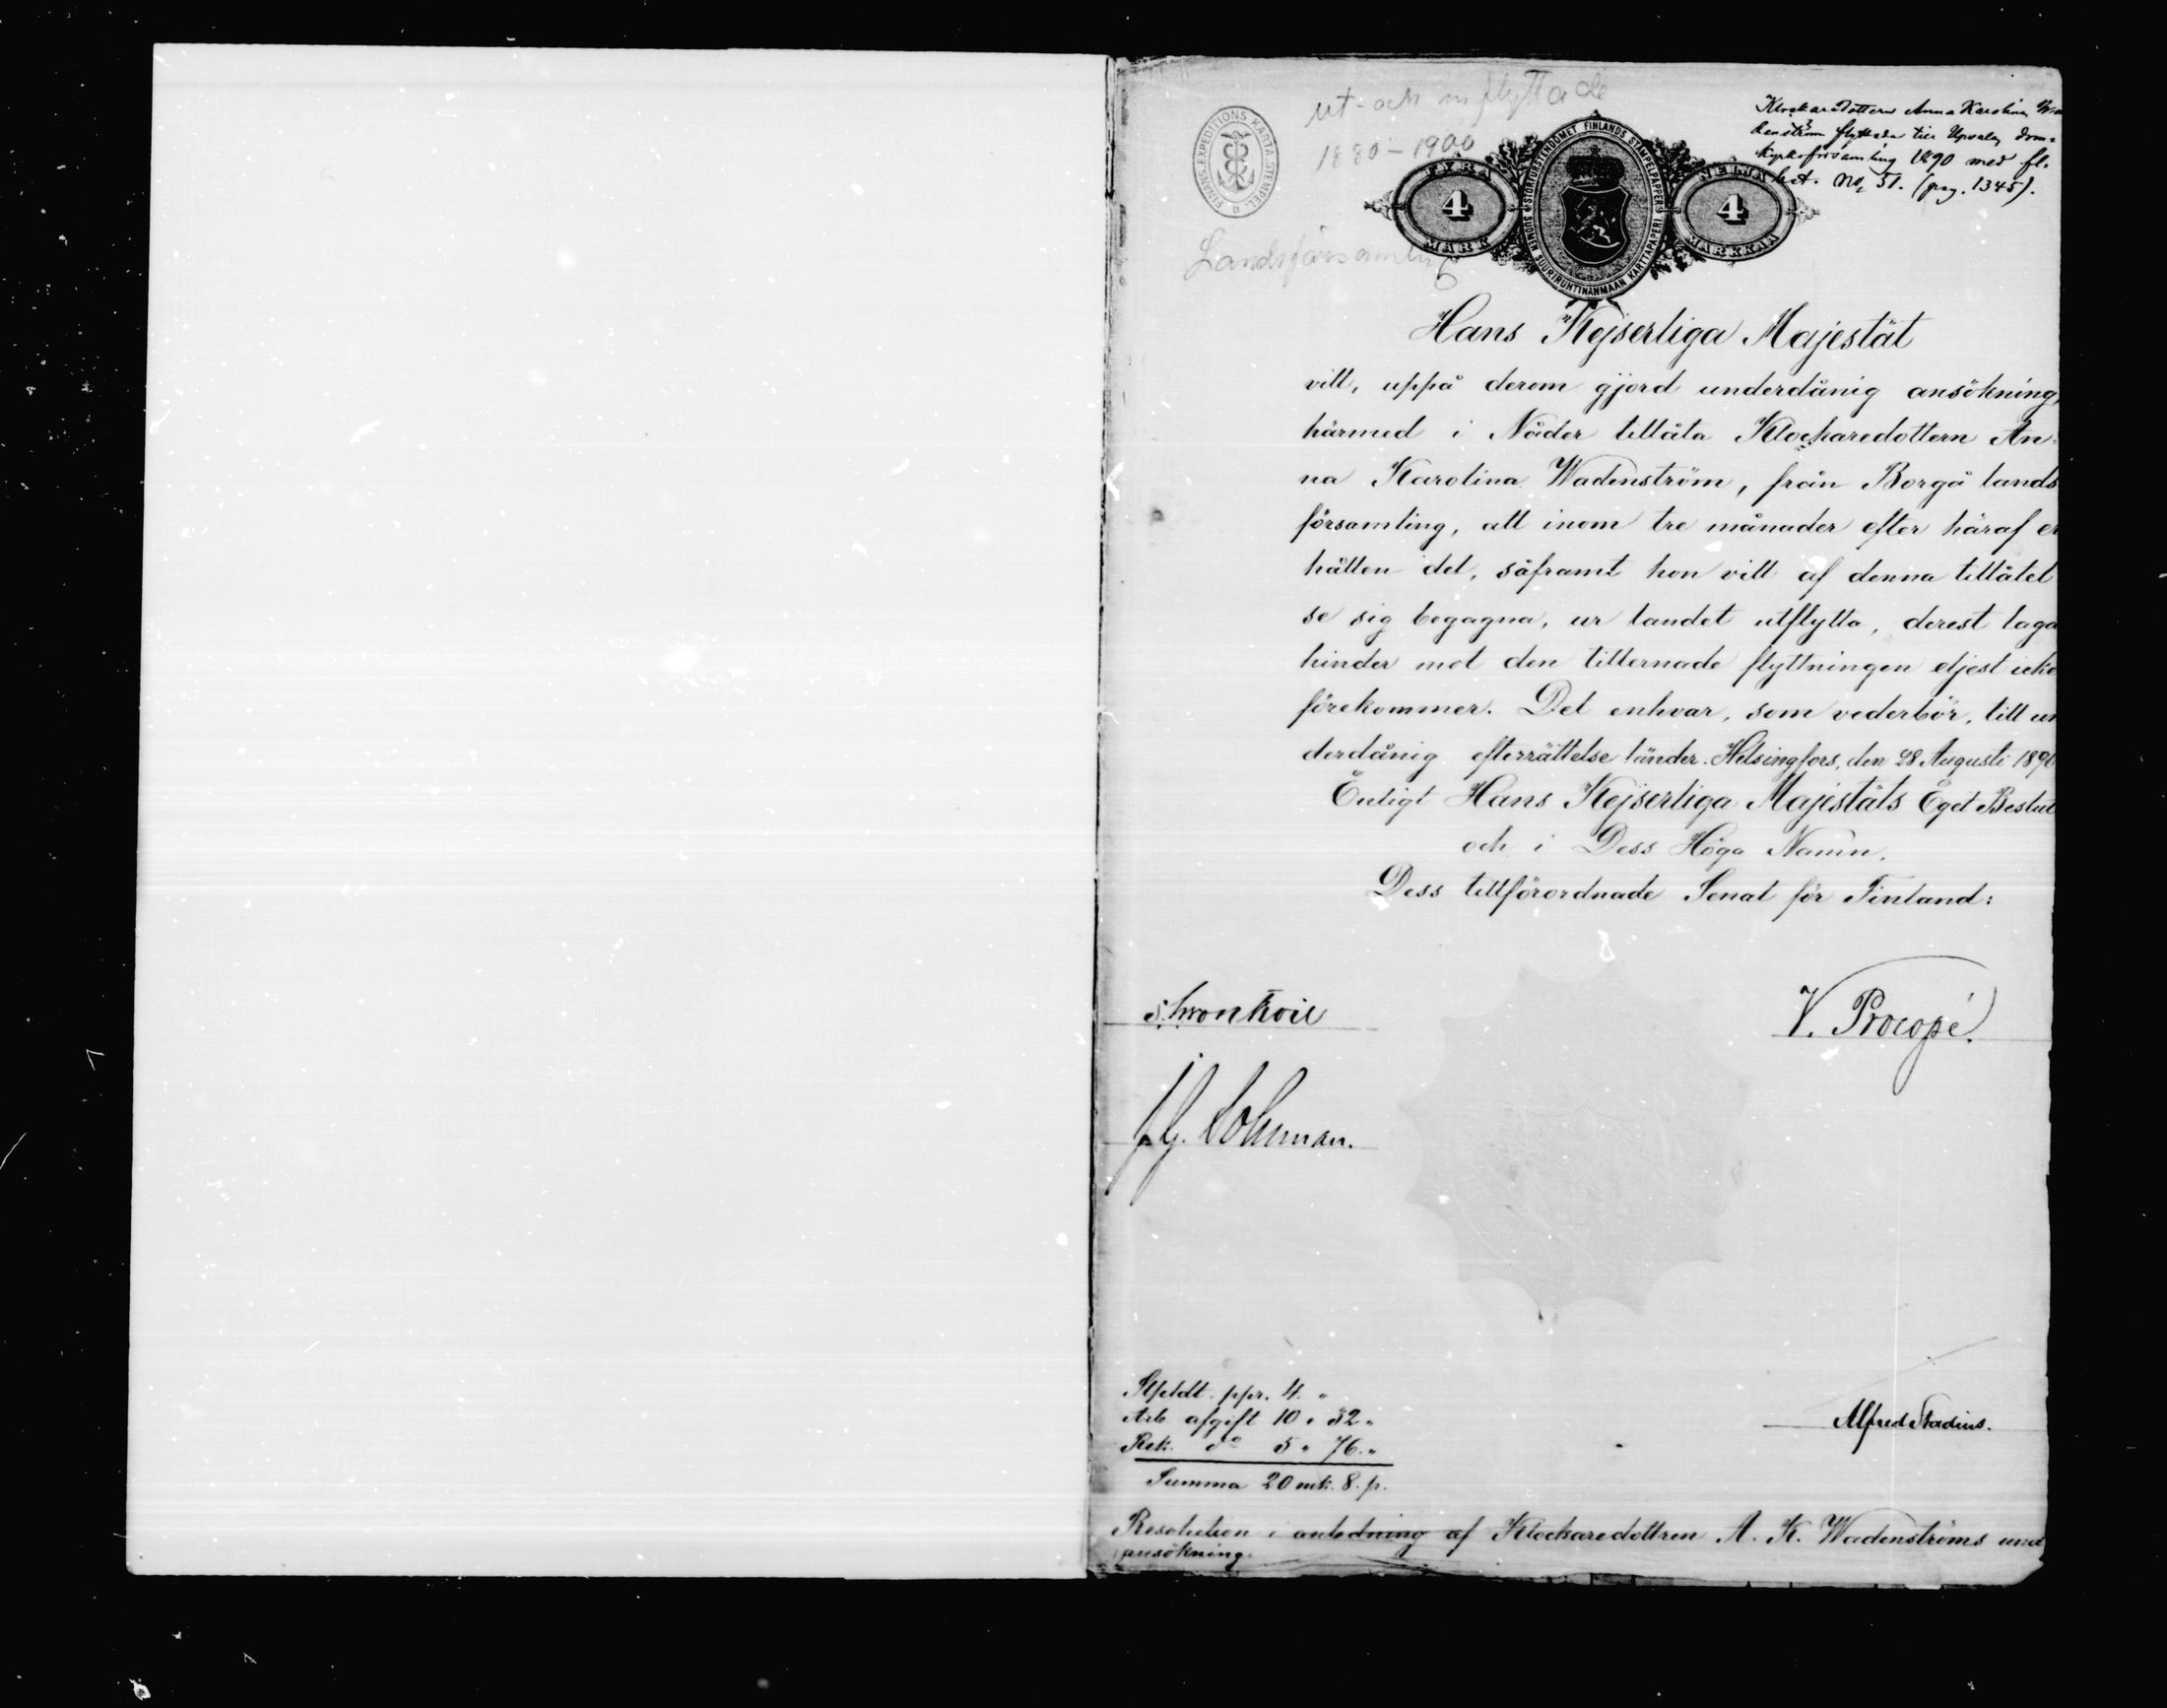 ut- och inflyttade
1880-1900
Landsförsamling
FINANS. EXPEDITIONS KARTA STEMPEL
FYRA
4
MARK
STORFURSTENDÖMET FINLANDS STÄMPELPAPPER
SUOMEN SUURIRUHTINANMAAN KARTTAPAPERI
NELJÄ
4
MARKKAA
Klockaredottern Anna Karolina Wa
denström flyttade till Upsala dom-
kyrkoförsamling 1890 med fl.
bet. No 51. (pag. 1345).
Hans Kejserliga Majestät
vill, uppå derom gjord underdånig ansökning,
härmed i Nåder tillåta Klockaredottern An-
na Karolina Wadenström, från Borgå lands
församling, att inom tre månader efter häraf er
hållen del, såframt hon vill af denna tillåtel
se sig begagna, ur landet utflytta, derest laga
hinder mot den tillernade flyttningen eljest icke
förekommer. Det enhvar, som vederbör, till un
derdånig efterrättelse länder. Helsingfors, den 28 Augusti 1890
Enligt Hans Kejserliga Majestäts Eget Beslut
och i Dess Höga Namn,
Dess tillförordnade Senat för Finland:
V. Procopé.
Alfred Stadius.
Stpldt. ppr. 4. "
Arb afgift 10 " 32 "
Rek. do 5 " 76. "
Summa 20 mk. 8. p.
Resolution i anledning af Klockaredottren A. K. Wadenströms und
ansökning.